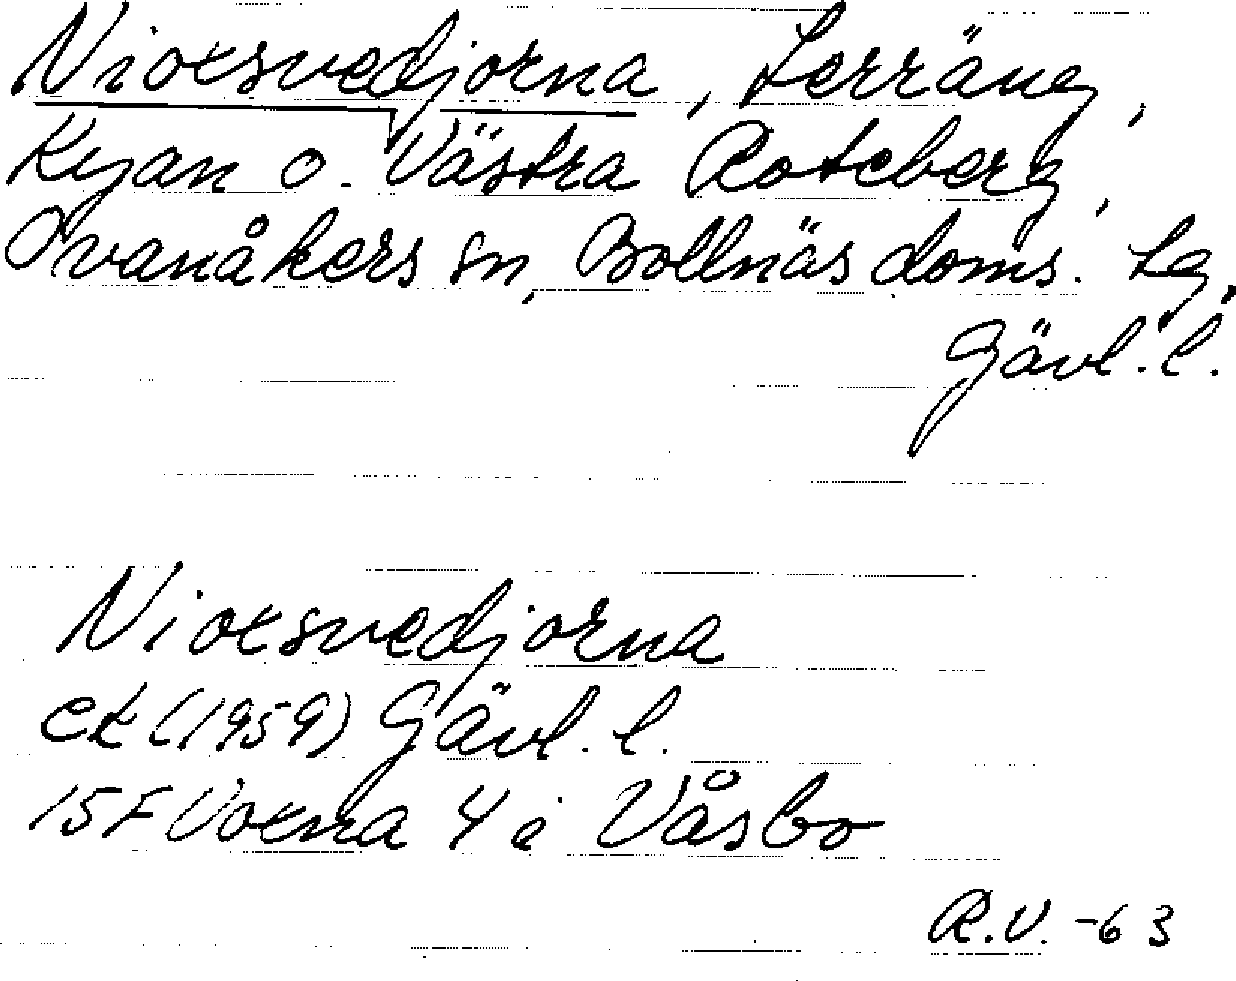 Nioxsvedjorna, Terräng,
Kyan o. Västra Roteberg,
Ovanåkers sn, Bollnäs doms. tg,
Gävl. l.
Nioxsvedjorna
ek (1959) Gävl. l.
15F Voxna 4 i Våsbo
R.V. -63